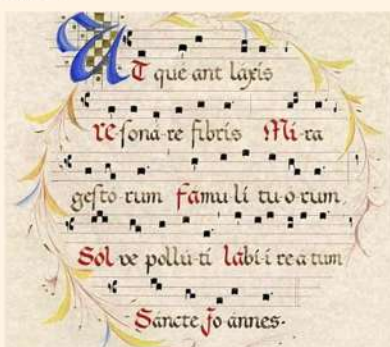 UT que ant láxis
re-soná-re fibris Mi-ra
gestó-rum fámu-li tu-o-rum
Sol-ve pollú-ti lábi-i re-a tum
Sáncte Jo-ánnes.